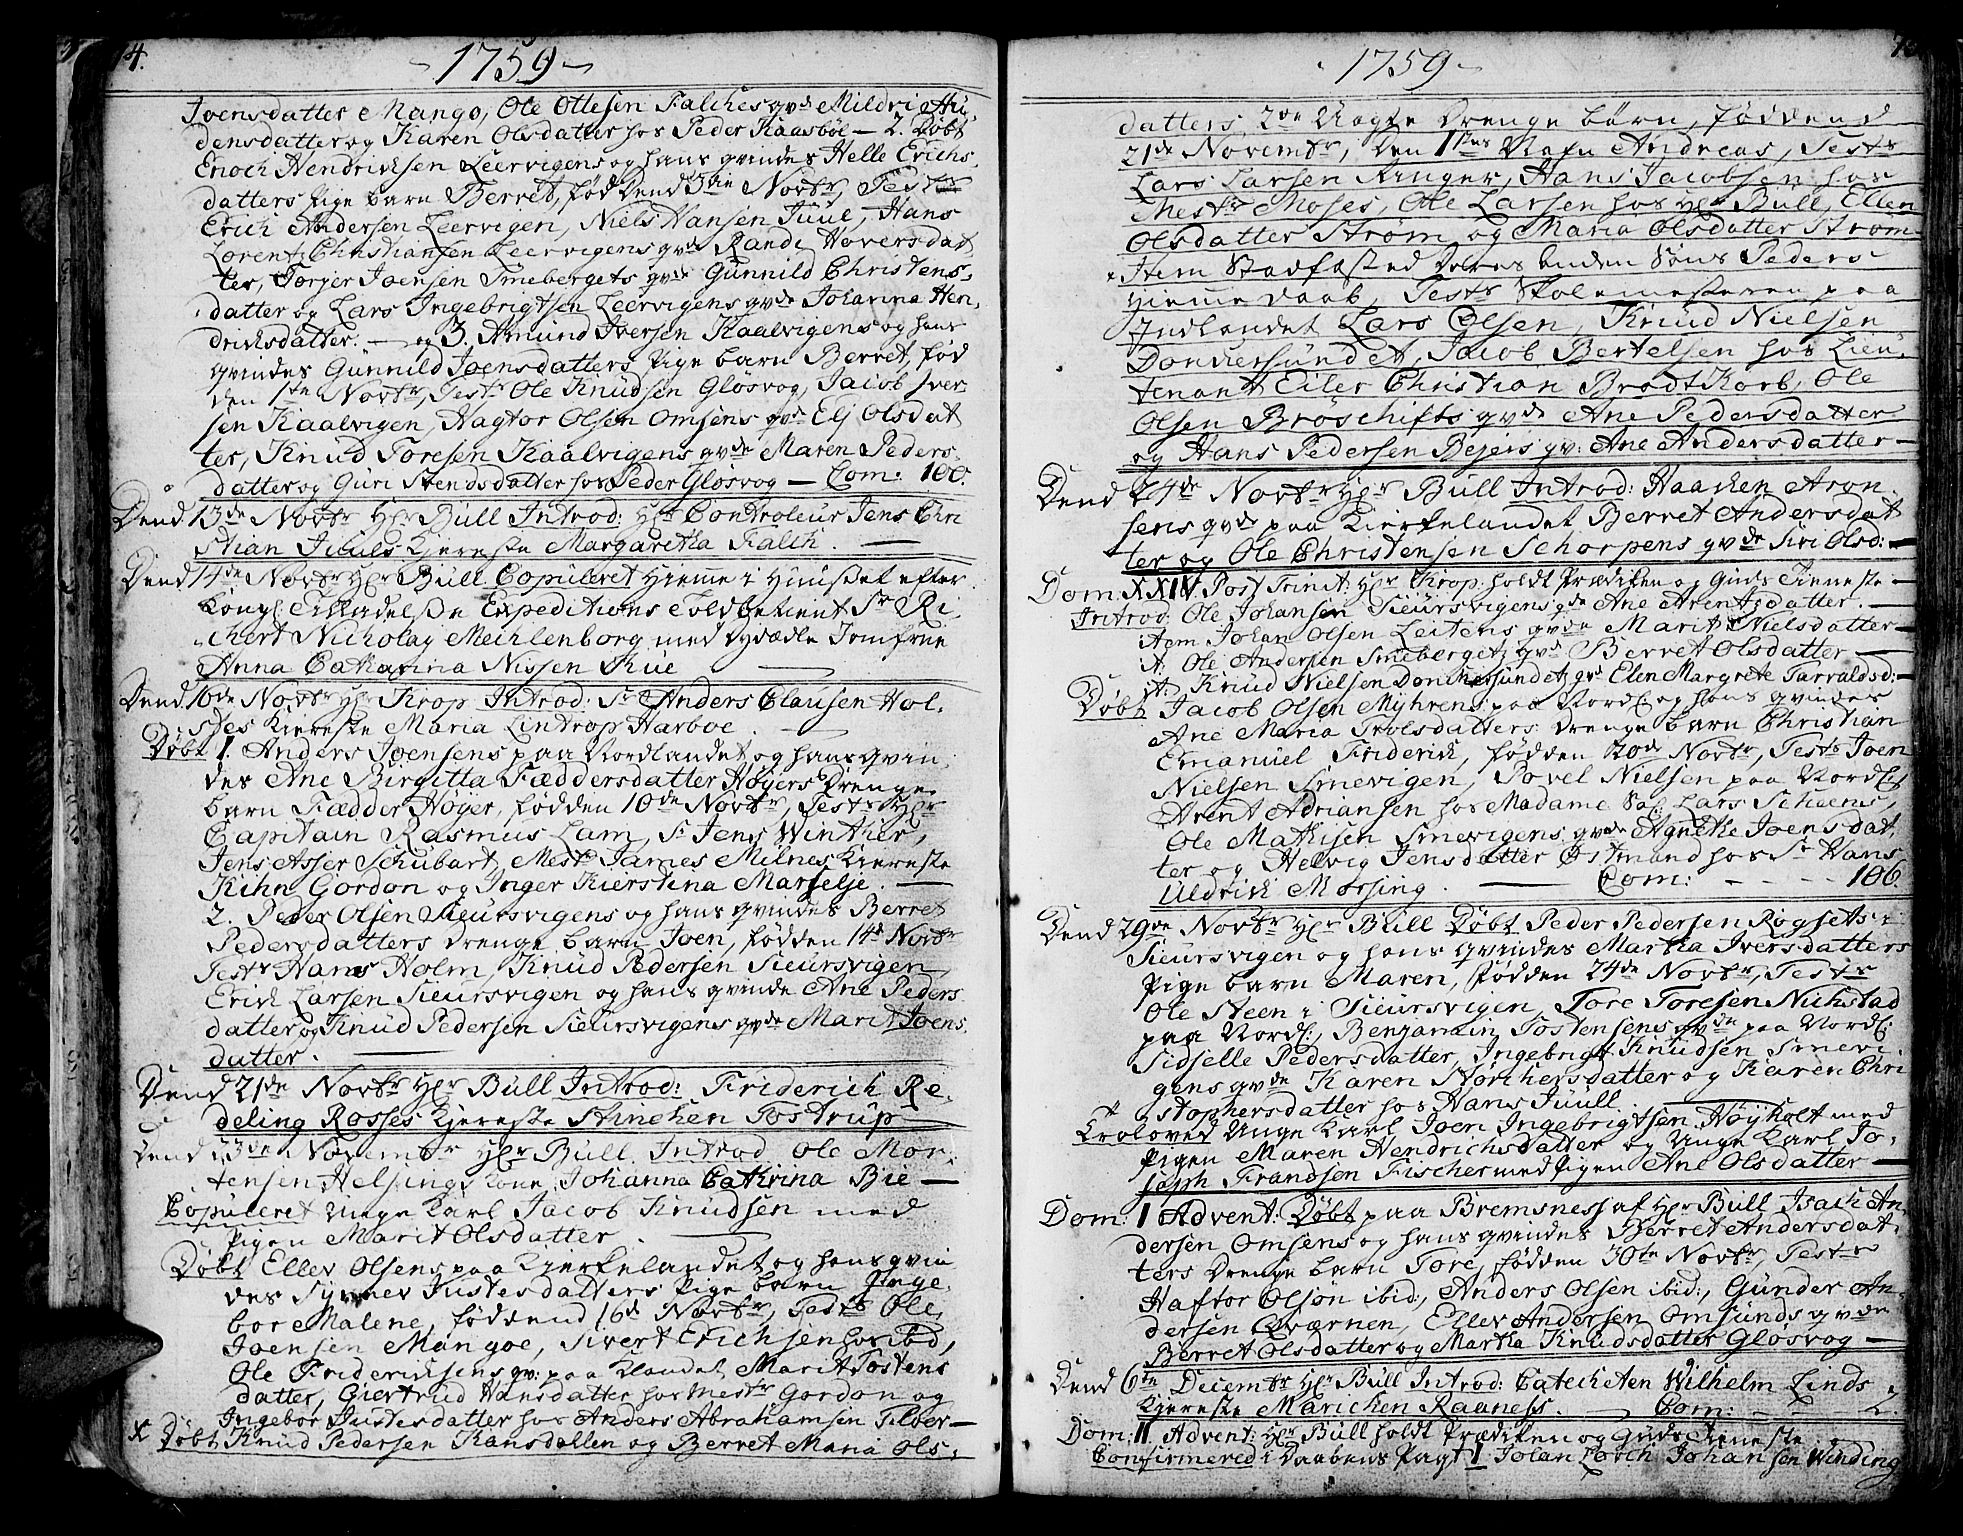 4.
-1759-
Joensdatter Mangø, Ole Ottesen Falches qvde Mildri Hu-
densdatter og Karen Olsdatter hos Peder Kaasbøe — 2. Døbt
Enoch Hendrichsen Leervigens og hans qvindes Helle Erichs-
datters Pige barn Berret, fød dend 3die Novbr, Testr
Erich Andersen Leervigen, Niels Hansen Juul, Hans
Lorentz Christiansen Leervigens qvde Randi Hoversdat
ter, Torger Joensen Smebergets qvde Gunnild Christens-
datter og Lars Ingebrigtsen Leervigens qvde Johanna Hen-
drichsdatter. — og 3. Amund Iversen Kaalvigens og hans
qvindes Gunnild Joensdatters Pige barn Berret, fød
den 1ste Novbr, Testr Ole Knudsen Gløsvog, Jacob Iver-
sen Kaalvigen, Hagtor Olsen Omsens qvde Elj Olsdat
ter, Knud Toresen Kaalvigens qvde Maren Peders-
datter og Guri Stendsdatter hos Peder Gløsvog — Com: 100.
Dend 13de Novbr Hr Bull Introd: Hr Controleur Jens Chri
stian Juuls Kiereste Margaretha Falch. —
Dend 14de Novbr Hr Bull Copuleret Hiemme i Huuset efter
Kongl: Tilladelsse Expeditions Toldbetient Sr Ri-
chert Nicholay Meihlenborg med dydædle Jomfrue
Anna Catharina Nissen Rue —
Dend 16de Novbr Hr Krop Introd: Sr Anders Clausen Hol-
stes Kiereste Maria Lintrop Harboe. —
Døbt 1. Anders Joensens paa Nordlandet og hans qvin
des Ane Birgitta Fæddersdatter Høyers Drenge
barn Fædder Høyer, fødden 10de Novbr, Testr Hr
Capitain Rasmus Lam, Sr Jens Winther,
Jens Asser Schubart, Mestr James Milnes Kiereste
Kihn Gordon og Inger Kierstina Marselje. —
2. Peder Olsen Sieursvigens og hans qvindes Berret
Pedersdatters Drenge barn Joen, fødden 14d Novbr
Testr Hans Holm, Knud Pedersen Sieursvigen,
Erich Larsen Sieursvigen og hans qvinde Ane Peders
datter og Knud Pedersen Sieursvigens qvde Marit Joens-
datter. —
Dend 21de Novbr Hr Bull Introd: Friderich Re-
deling Rosses Kiereste Stinchen Tostrup —
Dend 23de Novembr Hr Bull Introd Ole Mor-
tensen Helsings kone Johanna Cathrina Bie —
Copuleret Unge Karl Jacob Knudsen med
Pigen Marit Olsdatter —
Døbt Ellev Olsens paa Kierkelandet og hans qvin
des Synnev Justesdatters Pige barn Inge-
bor Malene, fødden d 16d Novbr, Testr Ole
Joensen Mangøe, Sivert Erichsen hos ibid,
Ole Friderichsens qv: paa Klandet Marit Tostens
datter, Giertrud Hansdatter hos Mestr Gordon og
Ingebor Justesdatter hos Anders Abrahamsen Tilver —
x Døbt Knud Pedersen Kansdallen og Berret Maria Ols-
1759-
datters 2de Uægte Drenge børn, fødde d
21de Novembr, den 1stes Nafn Andreas, Testr
Lars Larsen Ringer, Hans Jacobsen hos
Mestr Moses, Ole Larsen hos Hr Bull, Ellen
Olsdatter Strøm og Maria Olsdatter Strøm
Item Stadfæsted deres anden Søns Peders
Hiemme daab, Testr Skolemesteren paa
Indlandet Lars Olsen, Knud Nielsen
Donckersundet, Jacob Bertelsen hos Lieu-
tenant Eiler Christian BrodtKorb, Ole
Olsen Brøschifts qvde Ane Pedersdatter
og Hans Pedersen Bejers qv: Ane Andersdatter —
Dend 24de Novbr Hr Bull Introd: Haachen Aron-
sens qvde paa Kierkelandet Berret Andersdat
ter og Ole Christensen Schorpens qvde Siri Olsd: —
Dom XXIV. Post Trinit: Hr Krop holdt Prædiken og Guds Tieneste —
Introd Ole Johansen Sieursvigens qde Ane Arentsdatter. —
Item Johan Olsen Leitens qvde Marit Nielsdatter —
it. Ole Andersen Smebergetz qvd Berret Olsdatter —
it. Knud Nielsen Donckersundetz qvd Elen Margrete Tarraldsd: —
Døbt Jacob Olsen Myhrens paa Nordl: og hans qvindes
Ane Maria Trolsdatters Drenge barn Christian
Emanuel Friderich, fødden 20de Novbr, Testr Joen
Nielsen Smevigen, Povel Nielsen paa Nordl:
Arent Adriansen hos Madame Sal: Lars Scheens,
Ole Mathisen Smevigens qvde Agnethe Joensdat
ter og Helvig Jensdatter Østmand hos Sr Hans
Uldrich Morsing. — Com: - - - - 106.
Dend 29de Novbr Hr Bull Døbt Peder Pedersen Røgsets i
Sieursvigen og hans qvindes Martha Iversdatters
Pige barn Maren, fødden 24de Novbr, Testr
Ole Steen i Sieursvigen, Tore Toresen Nichstad
paa Nordl:, Benjamin Tostensens qvde paa Nordl:
Sidselle Pedersdatter, Ingebrigt Knudsen Smevi
gens qvde Karen Nørchersdatter og Karen Chri
stophersdatter hos Hans Juull. —
Troloved Unge Karl Joen Ingebrigtsen Høyholt med
Pigen Maren Hendrichsdatter og Unge Karl Jo-
seph Frandsen Fischer med Pigen Ane Olsdatter —
Dom: I Advent: Døbt paa Bremsness af Hr Bull Isach An-
dersen Omsens og hans qvindes Berret Andersdat-
ters Drenge barn Tore, fødden 30te Novbr, Testr
Haftor Olsøn ibid:, Anders Olsen ibid:, Gunder An-
dersen Qværnen, Ellev Andersen Omsunds qvde
Berret Olsdatter og Martha Knudsdatter Gløsvog —
Dend 6te Decembr Hr Bull Introd: Catecheten Wilhelm Linds
Kiereste Marichen Raaness. — Com: - - - 2.
Dom: II. Advent: Hr Bull holdt Prædiken og Guds Tieneste
Confirmered i Daabens Pagt 1 Johan Lorch Johansen Winding